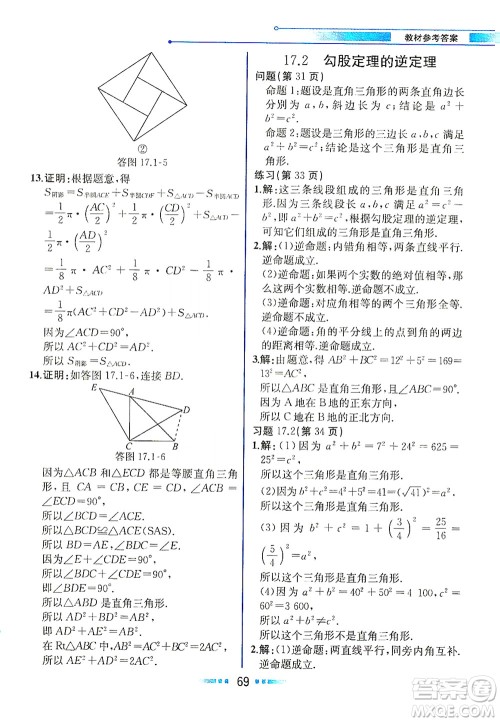 教材参考答案
②
答图 17.1-5
13.证明:根据题意,得
S阴影=S半圆ACE+S半圆CDF+S△ACD-S半圆ACD
=1/2π·(AC/2)²+1/2π·(CD/2)²+S△ACD-
1/2π·(AD/2)²
=1/8π·AC²+1/8π·CD²-1/8π·
AD²+S△ACD
=1/8π(AC²+CD²-AD²)+S△ACD.
因为∠ACD=90°,
所以AC²+CD²-AD²=0.
所以S阴影=S△ACD.
14.证明:如答图 17.1-6,连接 BD.
E
A
D
C
B
答图 17.1-6
因为△ACB和△ECD都是等腰直角三角
形,∠ACB=∠ECD=90°,
所以AC=BC,EC=DC,∠E+∠CDE
=∠EDC=90°.
所以∠ECA=∠DCB.
所以△ACE≌△BCD(SAS).
所以BD=AE,∠BDC=∠E.
因为∠E+∠CDE=90°,
所以∠BDC+∠CDE=90°.
所以∠BDE=90°.
所以△ADB是直角三角形.
所以AD²+BD²=AB².
所以AD²+AE²=AB².
在Rt△ACB中,AC²+BC²=AB²,
所以AB²=2AC².
即AD²+AE²=2AC².
17.2 勾股定理的逆定理
问题(第 31 页)
命题 1:题设是直角三角形的两条直角边长
分别为 a,b,斜边长为 c,结论是 a²+b²=c².
命题 2:题设是三角形的三边长 a,b,c 满足
a²+b²=c²,结论是这个三角形是直角三
角形.
练习(第 33 页)
1.解:这三条线段组成的三角形是直角三角
形.因为a²+b²=c²,根据勾股定理的逆定理,
可知它们组成的三角形是直角三角形.
2.解:(1)逆命题:内错角相等,两条直线平行.
逆命题成立.
(2)逆命题:如果两个实数的绝对值相等,那
么这两个实数相等.逆命题不成立.
(3)逆命题:对应角相等的两个三角形全等.
逆命题不成立.
(4)逆命题:到角的两边的距离相等的点在角的平分线上.逆命题成立.
3.解:由题意,得AB²+BC²=12²+5²=169=
13²=AC²,
所以△ABC是直角三角形,∠B=90°.
所以C地在B地的正北方向.
习题 17.2(第 34 页)
1.解:(1)因为a²+b²=7²+24²=625=25²
=c²,
所以这个三角形是直角三角形.
(2)因为b²+c²=4²+5²=41=(√41)²=a²,
所以这个三角形是直角三角形.
(3)因为a²+c²=1²+(3/4)²=25/16
=(5/4)²=b²,
所以这个三角形是直角三角形.
(4)因为a²+b²=40²+50²=4 100,c²=
60²=3 600,
所以a²+b²≠c².
所以这个三角形不是直角三角形.
2.解:(1)逆命题:两直线平行,同旁内角互补.
逆命题成立.
69